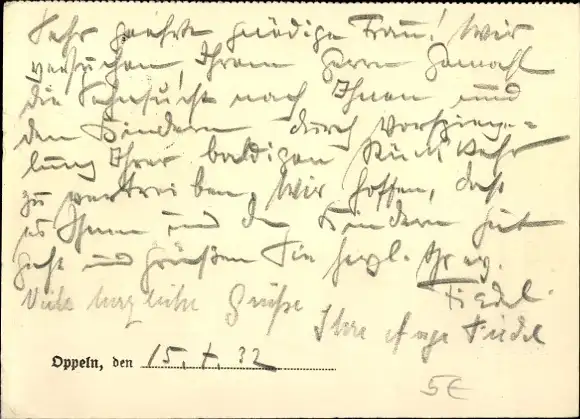 Sehr geehrte gnädige Frau! Wir
versuchen, Ihrem Herrn Gemahl
die Sehnsucht nach Ihnen und
den Kindern durch Vorspiege=
lung Ihrer baldigen Rückkehr
zu vertreiben. Wir hoffen, daß
es Ihnen und den Kindern gut
geht und grüßen Sie herzl.
Fiedel.
Viele herzliche Grüße
Ihre Fiedel
Oppeln, den 15. 32
5€